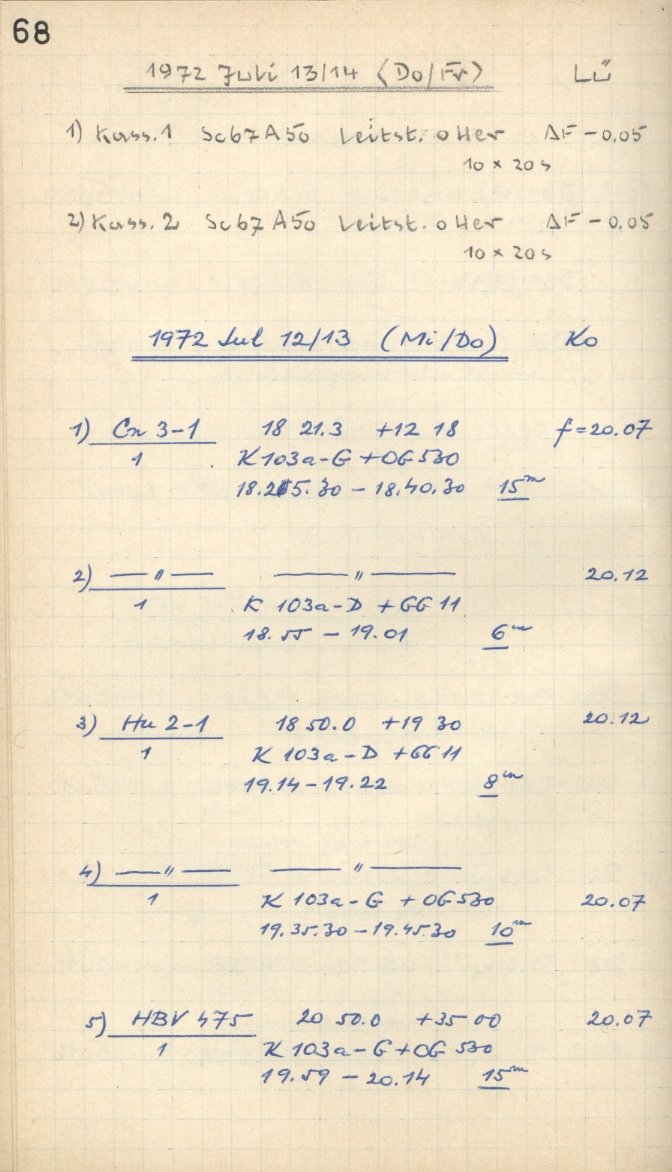 68
1972 Juli 13/14 (Do/Fr) Lü
1) Kass.1 Sc67A50 Leitst. o Her ΔF -0,05
10 x 20s
2) Kass. 2 Sc67A50 Leitst. o Her ΔF -0,05
10 x 20s
1972 Jul 12/13 (Mi/Do) Ko
1) Cn 3-1 18 21.3 +12 18 f=20.07
1 K 103a-G + OG530
18.25.30 - 18.40.30 15m
2) — " — — " — 20.12
1 K 103a-D + GG 11
18.55 - 19.01 6m
3) Hu 2-1 18 50.0 +19 30 20.12
1 K 103a-D + GG 11
19.14 - 19.22 8m
4) — " — — " —
1 K 103a-G + OG530 20.07
19.35.30 - 19.45.30 10m
5) HBV 475 20 50.0 +35 00 20.07
1 K 103a-G + OG 530
19.59 - 20.14 15m